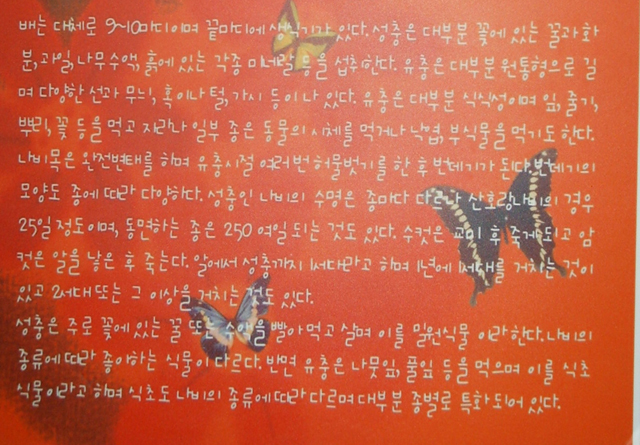 배는 대체로 9~10마디이며 끝마디에 생식기가 있다. 성충은 대부분 꽃에 있는 꿀과 화
분, 과일, 나무수액, 흙에 있는 각종 미네랄 등을 섭취한다. 유충은 대부분 원통형으로 길
며 다양한 선과 무늬, 혹이나 털, 가시 등이 나 있다. 유충은 대부분 식식성이며 잎, 줄기,
뿌리, 꽃 등을 먹고 자라나 일부 종은 동물의 시체를 먹거나 낙엽, 부식물을 먹기도 한다.
나비목은 완전변태를 하며 유충시절 여러번 허물벗기를 한 후 번데기가 된다. 번데기의
모양도 종에 따라 다양하다. 성충인 나비의 수명은 종마다 다르나 산호랑나비의 경우
25일 정도이며, 동면하는 종은 250여일 되는 것도 있다. 수컷은 교미 후 죽게 되고 암
컷은 알을 낳은 후 죽는다. 알에서 성충까지 1세대라고 하며 1년에 1세대를 거치는 것이
있고 2세대 또는 그 이상을 거치는 것도 있다.
성충은 주로 꽃에 있는 꿀 또는 수액을 빨아 먹고 살며 이를 밀원식물 이라 한다. 나비의
종류에 따라 좋아하는 식물이 다르다. 반면 유충은 나뭇잎, 풀잎 등을 먹으며 이를 식초
식물이라고 하며 식초도 나비의 종류에 따라 다르며 대부분 종별로 특화 되어 있다.